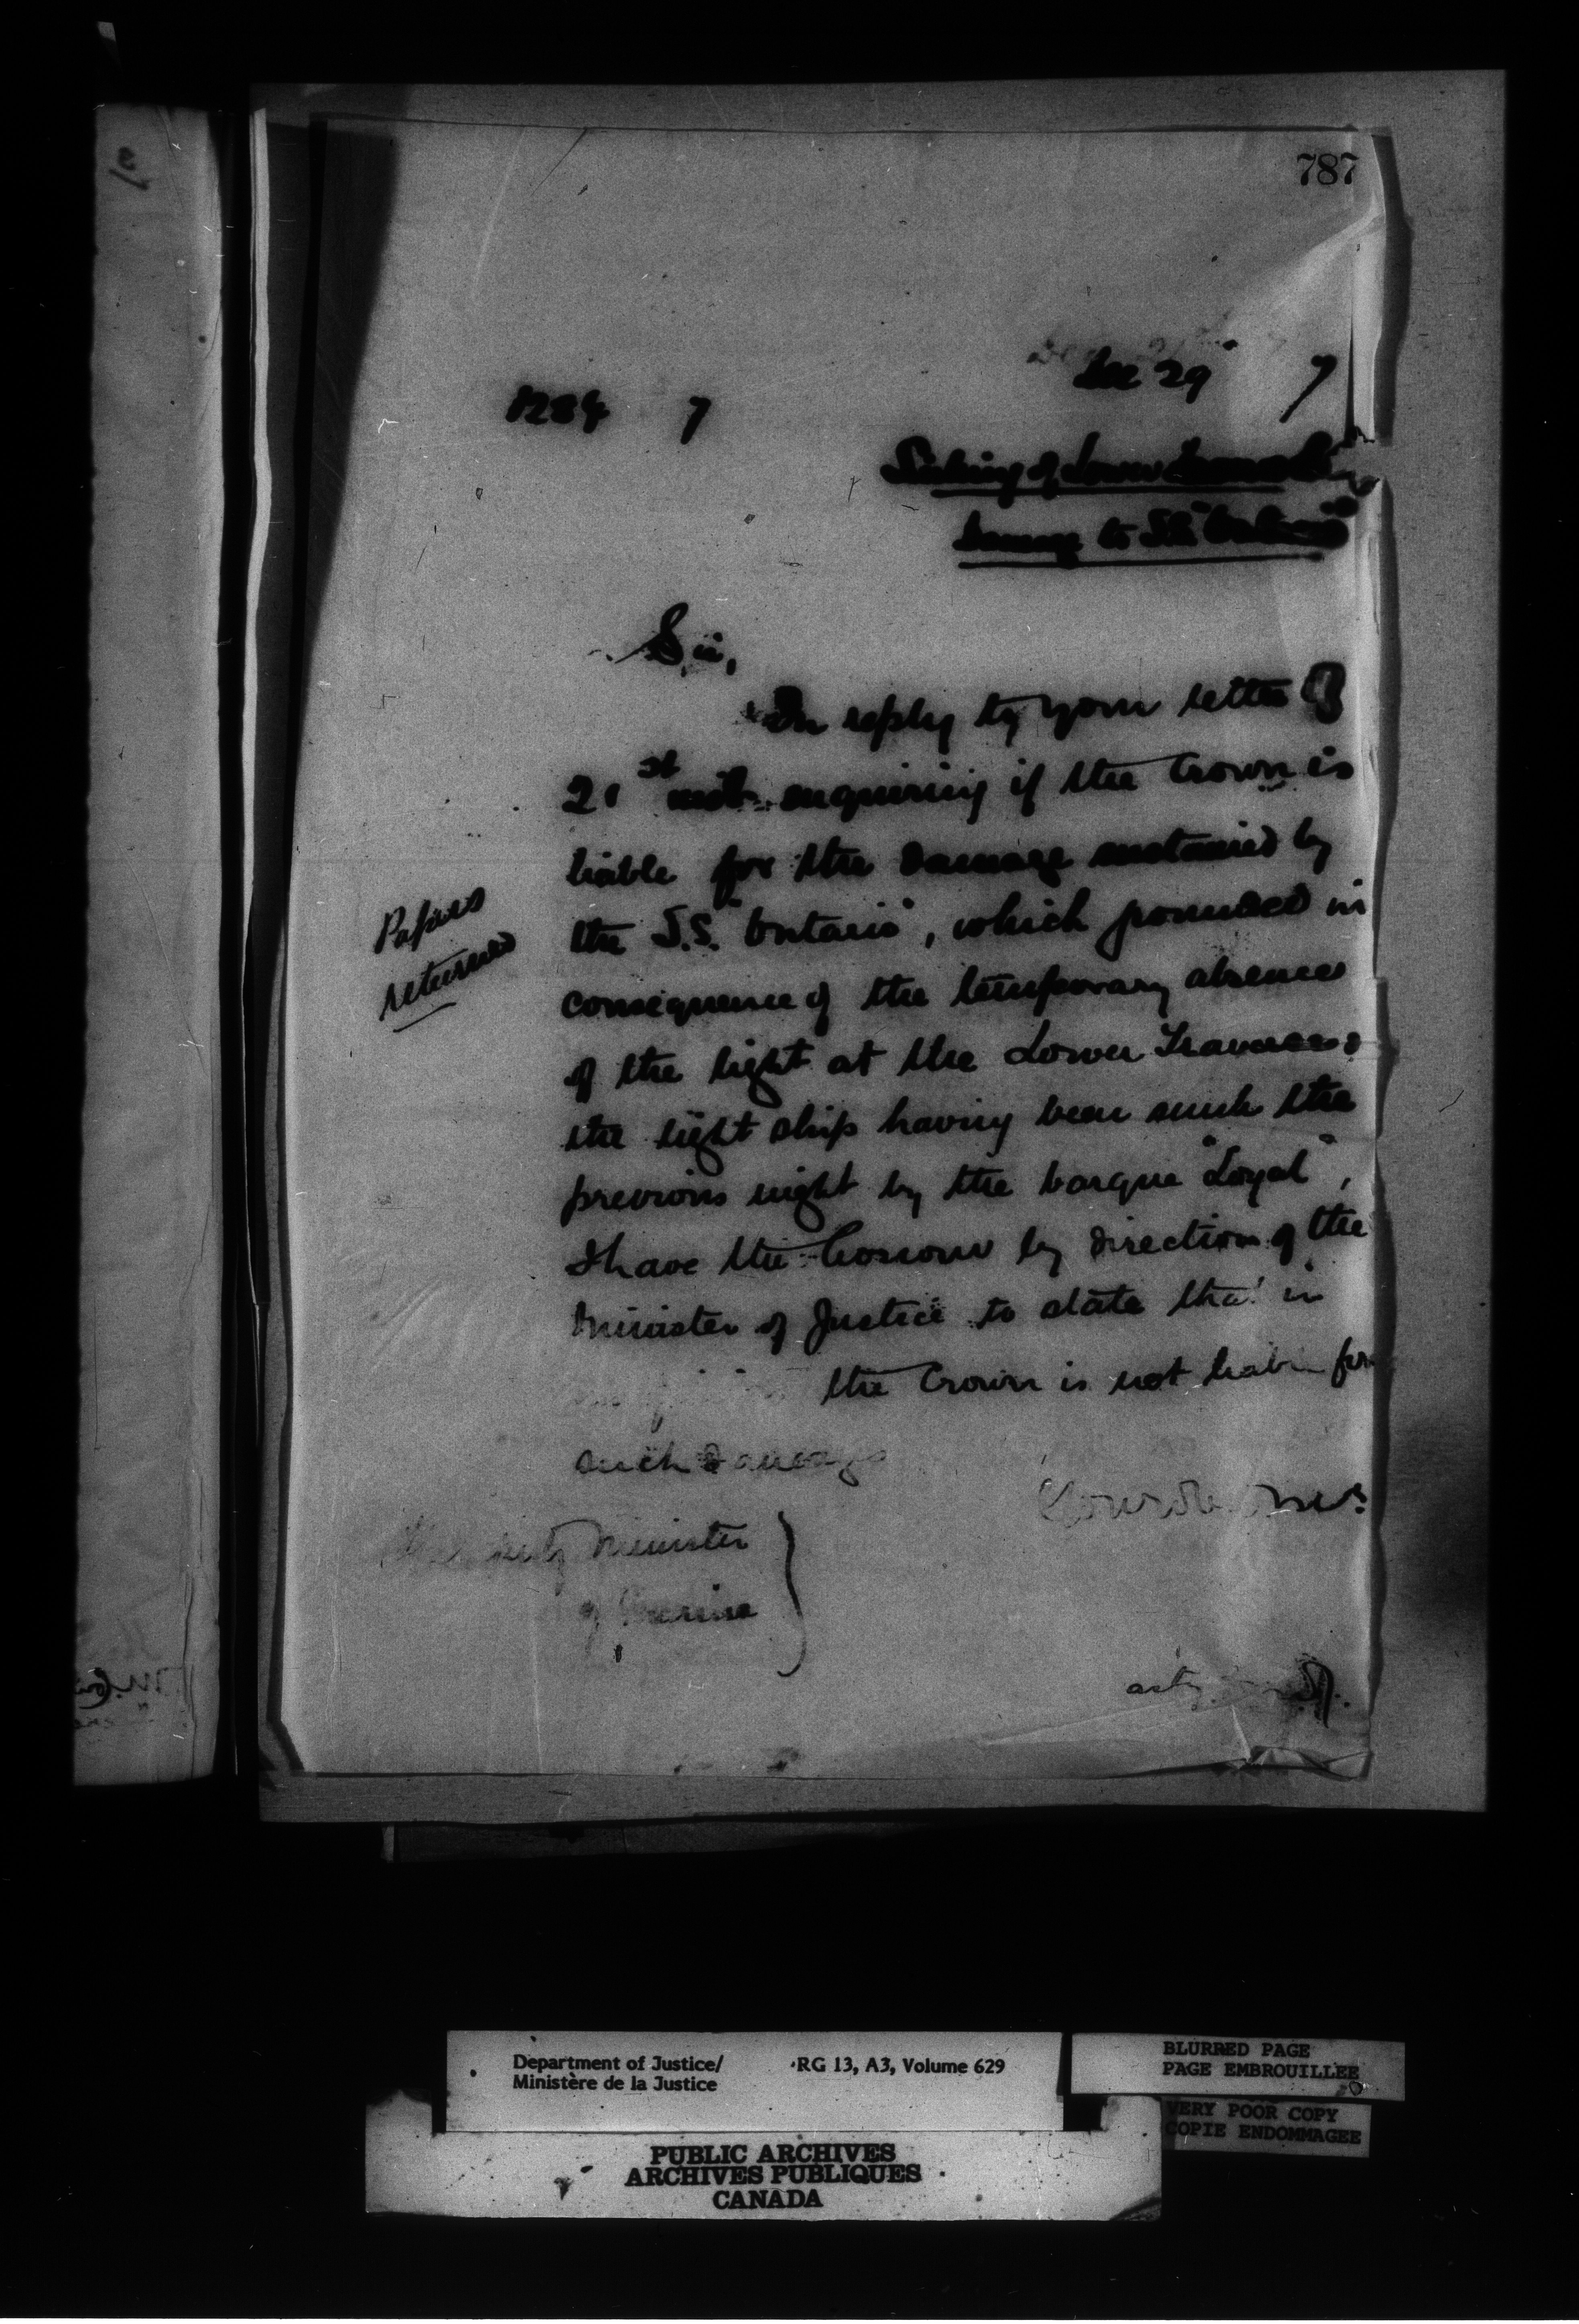 787
Dec 29 7
1284 7
Sinking of Lower Traverse
Damage to SS "Ontario"
Sir,
In reply to your letter of
21st inst. enquiring if the Crown is
liable for the damage sustained by
the S.S. "Ontario", which grounded in
consequence of the temporary absence
of the light at the Lower Traverse,
the light ship having been sunk the
previous night by the barque "Loyal",
I have the honour by direction of the
Minister of Justice to state that in
the Crown is not liable for
such damage
Papers
returned
Minister
of Marine
actg
Department of Justice/
Ministère de la Justice
RG 13, A3, Volume 629
BLURRED PAGE
PAGE EMBROUILLEE
VERY POOR COPY
COPIE ENDOMMAGEE
PUBLIC ARCHIVES
ARCHIVES PUBLIQUES
CANADA